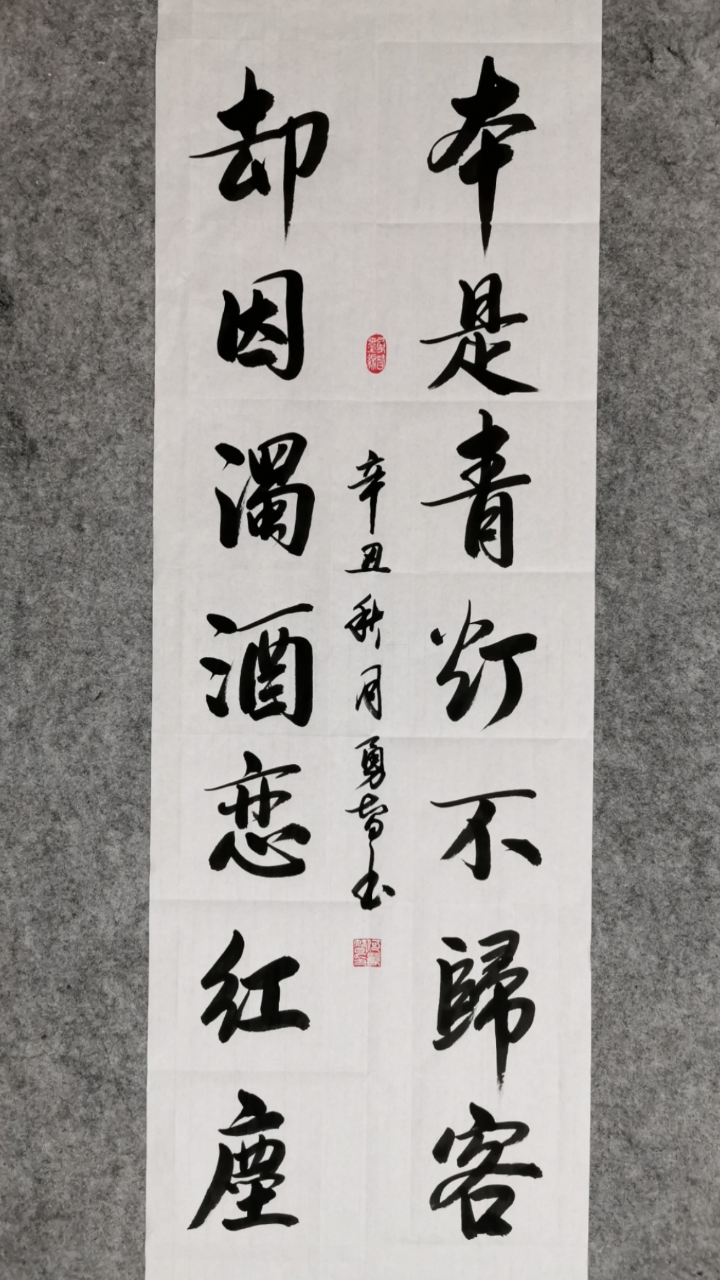 本是青灯不歸客
却因濁酒恋红塵
辛丑秋月勇智书